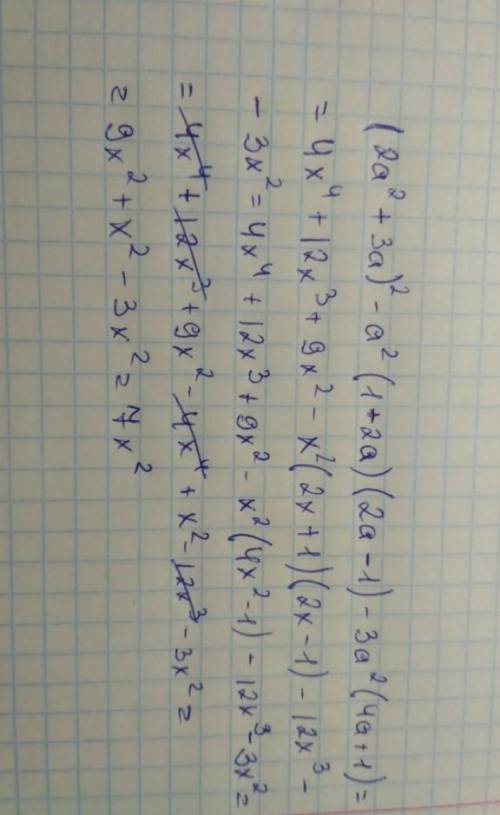 (2a² + 3a)² - a² (1+2a)(2a-1) - 3a² (4a+1) =
= 4x⁴ + 12x³ + 9x² - x²(2x+1)(2x-1) - 12x³ -
- 3x² = 4x⁴ + 12x³ + 9x² - x²(4x²-1) - 12x³ - 3x² =
= 4x⁴ + 12x³ + 9x² - 4x⁴ + x² - 12x³ - 3x² =
= 9x² + x² - 3x² = 7x²